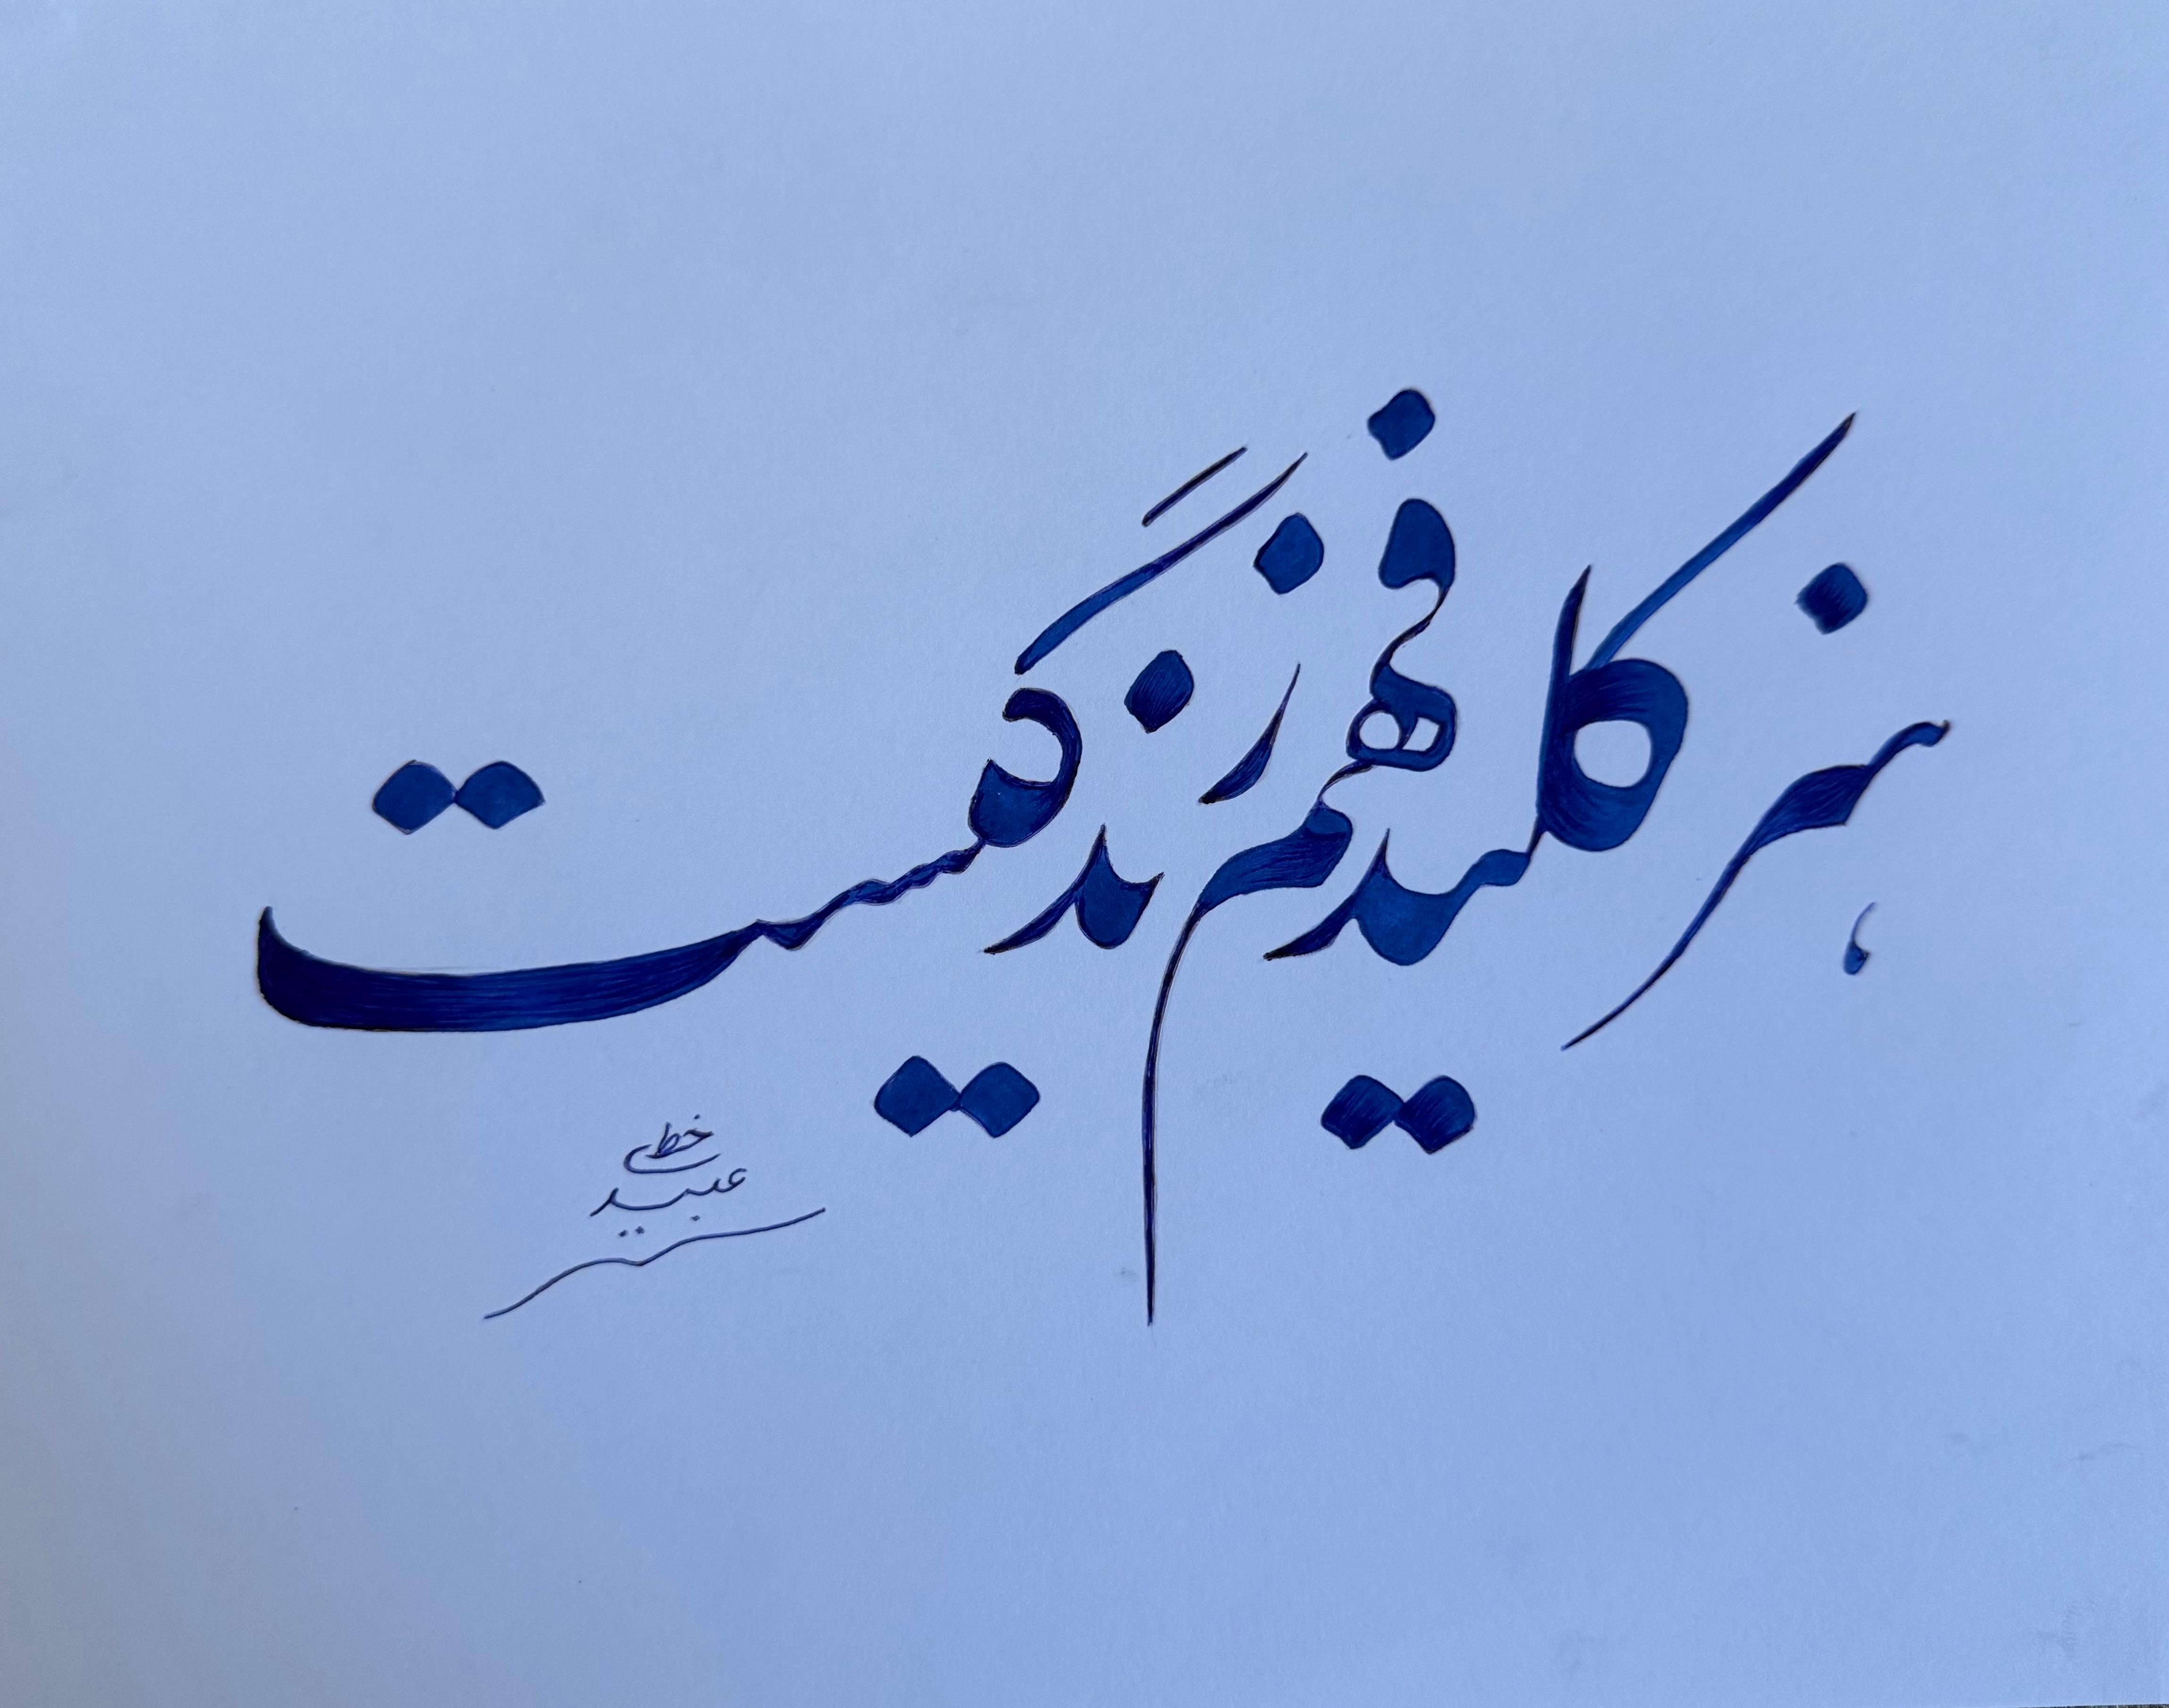 هنر کلید فهم زندگیست
خطی
عبید